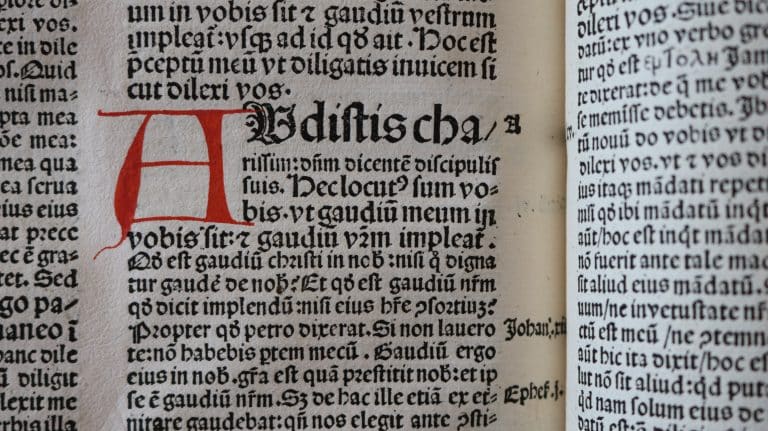 exi vos.
te in dile
os. Quid
nisi ma-
pta mea
õe mea:
mea qua
ea serua
ius eius
at prece
ec ē gra-
tet. Sed
go pa-
maneo ī
hanc dile
ū diligit
lexit me
erbis illa
um in vobis sit ⁊ gaudiū vestrum
impleat̄:vsq̄ ad id qḋ ait. Hoc est
p̄ceptū meū vt diligatis inuicem si
cut dilexi vos.
AUdistis cha/
rissim:dn̄m dicentē discipulis
suis. Hec locutꝰ sum vo-
bis.vt gaudiū meum in
vobis sit:⁊ gaudiū vr̄m impleat̄.
Qḋ est gaudiū christi in nob̄:nisi q̇ digna
tur gaudē de nob̄? Et qḋ est gaudiū nr̄m
qḋ dicit implendū:nisi eius hr̄e ꝯsortiuz?
Propter qḋ petro dixerat. Si non lauero
te:nō habebis ꝑtem mecū. Gaudiū ergo
eius in nob̄.gr̄a est quā prestitit nob̄:et ip
se ē gaudiū nr̄m. Sꝫ de hac ille etiā ex et-
nitate gaudebat:qn̄ nos elegit ante ꝯsti-
a
Johan̄.
Ephes̄.j.
dilexi vos. Siue dic
datū:ex vno verbo gre
tur qḋ est εντολη Jam
te dixerat:de q̄ me vob
se memisse debetis. Jb
tū nouū do vobis vt di
dilexi vos.vt ⁊ vos di
ius itaqꝫ mādati repeti
nisi qḋ ibi mādatū inqt
aūt/hoc est inqt mādati
nō fuerit ante tale mac
sit aliud eius mādatū.
uum/ne inuetustate nr̄
ctū est meū/ne ꝯtemn
aūt hic ita dixit/hoc es
lut nō sit aliud:qḋ put
qd nam solum eius de